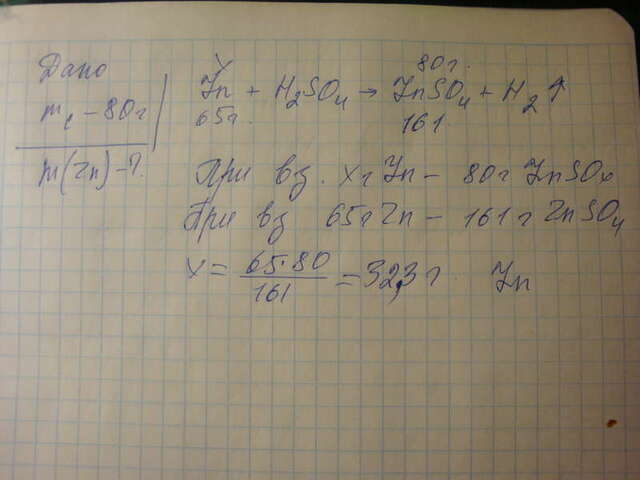 Дано
m с – 80г
m(Zn) – ?
x 80г.
Zn + H₂SO₄ → ZnSO₄ + H₂↑
65г. 161
При вз. xг Zn – 80г ZnSO₄
При вз 65г Zn – 161г ZnSO₄
x = 65·80/161 = 32,3г Zn